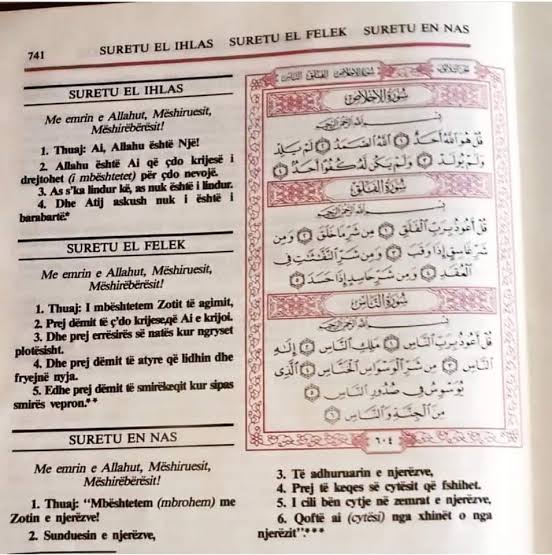 741
SURETU EL IHLAS SURETU EL FELEK SURETU EN NAS
SURETU EL IHLAS
Me emrin e Allahut, Mëshiruesit,
Mëshirëbërësit!
1. Thuaj: Ai, Allahu është Një!
2. Allahu është Ai që çdo krijesë i
drejtohet (i mbështetet) për çdo nevojë.
3. As s'ka lindur kë, as nuk është i lindur.
4. Dhe Atij askush nuk i është i
barabartë*
SURETU EL FELEK
Me emrin e Allahut, Mëshiruesit,
Mëshirëbërësit!
1. Thuaj: I mbështetem Zotit të agimit,
2. Prej dëmit të ç'do krijese,që Ai e krijoi.
3. Dhe prej errësirës së natës kur ngryset
plotësisht.
4. Dhe prej dëmit të atyre që lidhin dhe
fryejnë nyja.
5. Edhe prej dëmit të smirëkeqit kur sipas
smirës vepron.**
SURETU EN NAS
Me emrin e Allahut, Mëshiruesit,
Mëshirëbërësit!
1. Thuaj: "Mbështetem (mbrohem) me
Zotin e njerëzve!
2. Sunduesin e njerëzve,
3. Të adhuruarin e njerëzve,
4. Prej të keqes së cytësit që fshihet.
5. I cili bën cytje në zemrat e njerëzve,
6. Qoftë ai (cytësi) nga xhinët o nga
njerëzit".***
سُورَةُ الإِخْلَاصِ
بِسْمِ اللَّهِ الرَّحْمَٰنِ الرَّحِيمِ
قُلْ هُوَ اللَّهُ أَحَدٌ ١ اللَّهُ الصَّمَدُ ٢ لَمْ يَلِدْ
وَلَمْ يُولَدْ ٣ وَلَمْ يَكُن لَّهُ كُفُوًا أَحَدٌ ٤
سُورَةُ الْفَلَقِ
بِسْمِ اللَّهِ الرَّحْمَٰنِ الرَّحِيمِ
قُلْ أَعُوذُ بِرَبِّ الْفَلَقِ ١ مِن شَرِّ مَا خَلَقَ ٢ وَمِن
شَرِّ غَاسِقٍ إِذَا وَقَبَ ٣ وَمِن شَرِّ النَّفَّٰثَٰتِ فِي
الْعُقَدِ ٤ وَمِن شَرِّ حَاسِدٍ إِذَا حَسَدَ ٥
سُورَةُ النَّاسِ
بِسْمِ اللَّهِ الرَّحْمَٰنِ الرَّحِيمِ
قُلْ أَعُوذُ بِرَبِّ النَّاسِ ١ مَلِكِ النَّاسِ ٢ إِلَٰهِ
النَّاسِ ٣ مِن شَرِّ الْوَسْوَاسِ الْخَنَّاسِ ٤ الَّذِي
يُوَسْوِسُ فِي صُدُورِ النَّاسِ ٥
مِنَ الْجِنَّةِ وَالنَّاسِ ٦
٦٠٤